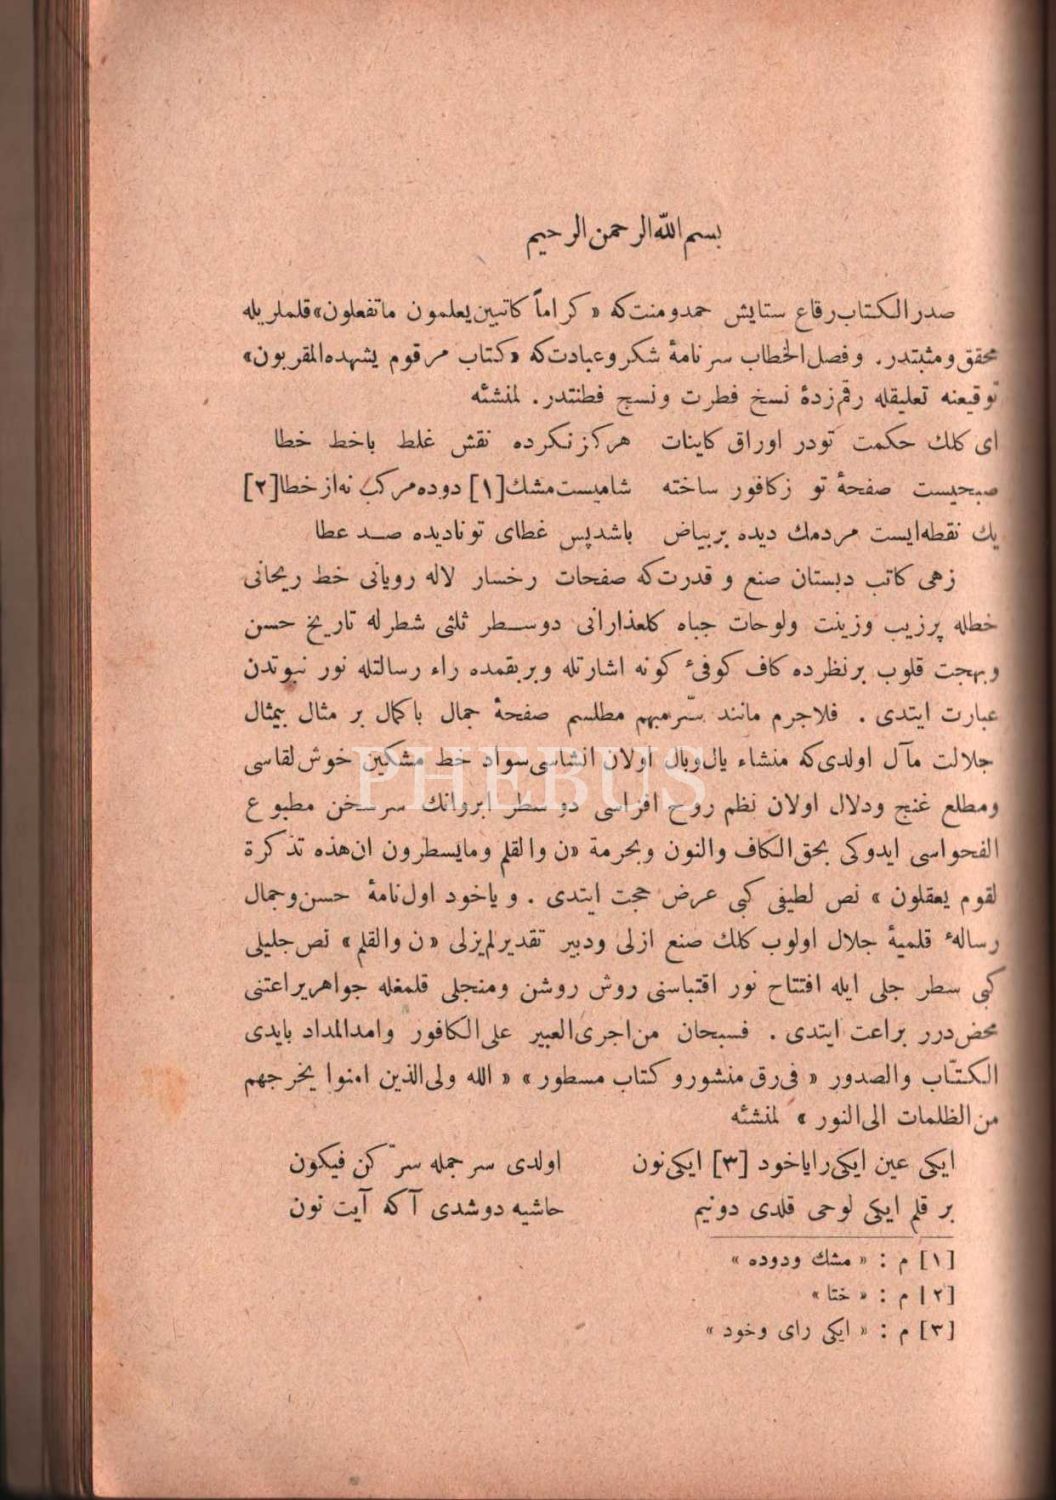 بسم الله الرحمن الرحيم
صدر الكتاب رقاع ستايش حمد ومنت كه « كراماً كاتبين يعلمون ما تفعلون » قلملريله
محقق ومثبتدر. وفصل الخطاب سرنامۀ شكر وعبادت كه « كتاب مرقوم يشهده المقربون »
توقيعنه تعليقله رقم زدۀ نسخ فطرت ونسج فطنتدر. لمنشئه
اى كلك حكمت تودر اوراق كاينات هركز نكرده نقش غلط باخط خطا
صبحيست صفحۀ تو زكافور ساخته شاميست مشك [١] دوده مركب نه از خطا [٢]
يك نقطه ايست مردمك ديده بر بياض باشد پس غطاى تو ناديده صد عطا
زهى كاتب دبستان صنع و قدرت كه صفحات رخسار لاله رويانى خط ريحانى
خطله پرزيب وزينت ولوحات جباه كلعذارانى دوسطر ثلثى شطرله تاريخ حسن
وبهجت قلوب برنظرده كاف كوفئ كونه اشارتله وبربقمده راء رسالتله نور نبوتدن
عبارت ايتدى . فلاجرم مانند سّر مبهم مطلسم صفحۀ جمال باكمال بر مثال بيمثال
جلالت مآل اولدى كه منشاء يال وبال اولان انشاسى سواد خط مشكين خوش لقاسى
ومطلع غنج ودلال اولان نظم روح افزاسى دو سطر ابروانك سر سخن مطبوع
الفحواسى ايدوكى بحق الكاف والنون وبحرمة « ن والقلم ومايسطرون ان هذه تذكرة
لقوم يعقلون » نص لطيفى كبى عرض حجت ايتدى . وياخود اول نامۀ حسن وجمال
رسالۀ قلميۀ جلال اولوب كلك صنع ازلى ودبير تقدير لم يزلى « ن والقلم » نص جليلى
كبى سطر جلى ايله افتتاح نور اقتباسنى روش روشن ومنجلى قلمغله جواهر يراعتنى
محض درر براعت ايتدى . فسبحان من اجرى العبير على الكافور وامد المداد بايدى
الكتّاب والصدور « فى رق منشور وكتاب مسطور » « الله ولى الذين امنوا يخرجهم
من الظلمات الى النور » لمنشئه
ايكى عين ايكى را ياخود [٣] ايكى نون اولدى سر جمله سرّ كن فيكون
بر قلم ايكى لوحى قلدى دونيم حاشيه دوشدى آكه آيت نون
[١] م : « مشك ودوده »
[٢] م : « ختا »
[٣] م : « ايكى راى وخود »
PHEBUS